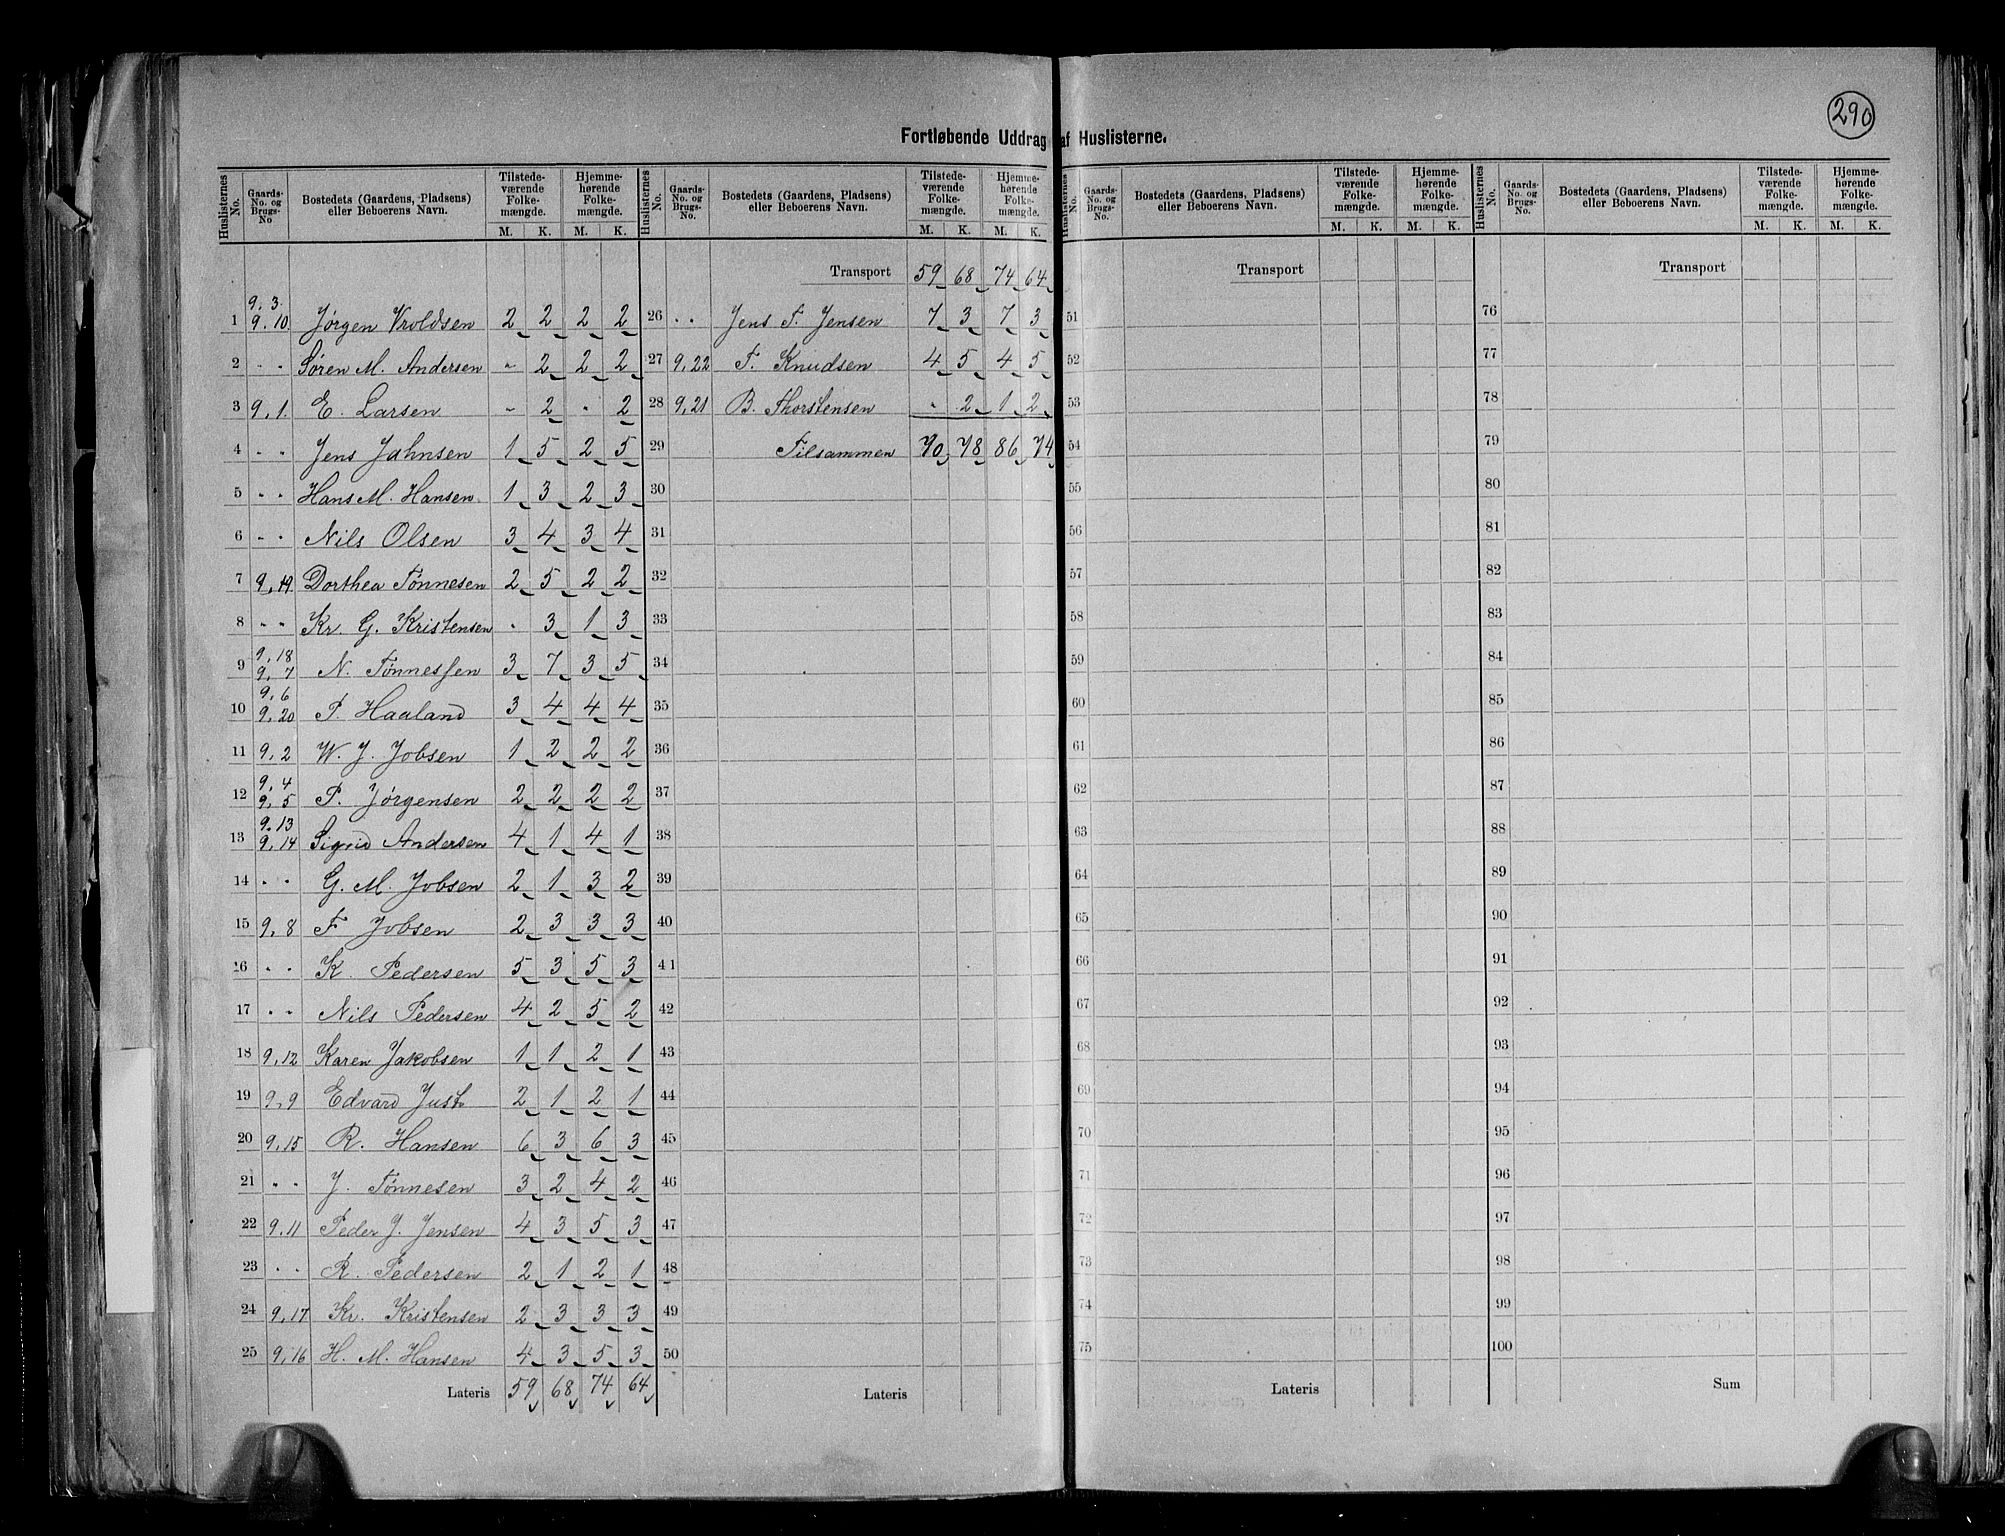 290
Fortløbende Uddrag af Huslisterne.
Huslisternes No. Gaards-No. og Brugs-No Bostedets (Gaardens, Pladsens) eller Beboerens Navn. Tilstedeværende Folkemængde. M. K. Hjemmehørende Folkemængde. M. K.
1 9, 3. 9. 10. Jørgen Vroldsen 2 2 2 2
2 " " Søren M. Andersen " 2 2 2
3 9, 1. E. Larsen " 2 " 2
4 " " Jens Jahnsen 1 5 2 5
5 " " Hans M. Hansen 1 3 2 3
6 " " Nils Olsen 3 4 3 4
7 9, 19 Dorthea Tønnesen 2 5 2 2
8 " " Kr. G. Kristensen " 3 1 3
9 9, 18 9, 7 N. Tønnesen 3 7 3 5
10 9, 6 9, 20 P. Haaland 3 4 4 4
11 9, 2 W. J. Jobsen 1 2 2 2
12 9, 4 9, 5 P. Jørgensen 2 2 2 2
13 9. 13 9, 14 Sigrid Andersen 4 1 4 1
14 " " G. M. Jobsen 2 1 3 2
15 9, 8 F Jobsen 2 3 3 3
16 " " K. Pedersen 5 3 5 3
17 " " Nils Pedersen 4 2 5 2
18 9, 12 Karen Jakobsen 1 1 2 1
19 9, 9 Edvard Just 2 1 2 1
20 9, 15 R. Hansen 6 3 6 3
21 " " J. Tønnesen 3 2 4 2
22 9, 11 Peder J. Jensen 4 3 5 3
23 " " R. Pedersen 2 1 2 1
24 9, 17 Kr. Kristensen 2 3 3 3
25 9, 16 H. M. Hansen 4 3 5 3
Lateris 59 68 74 64
Huslisternes No. Gaards-No. og Brugs-No. Bostedets (Gaardens, Pladsens) eller Beboerens Navn. Tilstedeværende Folkemængde. M. K. Hjemmehørende Folkemængde. M. K.
Transport 59 68 74 64
26 " " Jens T. Jensen 7 3 7 3
27 9, 22 T. Knudsen 4 5 4 5
28 9, 21 B. Thorstensen " 2 1 2
29 Tilsammen 70 78 86 74
30
31
32
33
34
35
36
37
38
39
40
41
42
43
44
45
46
47
48
49
50
Lateris
Huslisternes No. Gaards-No. og Brugs-No. Bostedets (Gaardens, Pladsens) eller Beboerens Navn. Tilstedeværende Folkemængde. M. K. Hjemmehørende Folkemængde. M. K.
Transport
51
52
53
54
55
56
57
58
59
60
61
62
63
64
65
66
67
68
69
70
71
72
73
74
75
Lateris
Huslisternes No. Gaards-No. og Brugs-No. Bostedets (Gaardens, Pladsens) eller Beboerens Navn. Tilstedeværende Folkemængde. M. K. Hjemmehørende Folkemængde. M. K.
Transport
76
77
78
79
80
81
82
83
84
85
86
87
88
89
90
91
92
93
94
95
96
97
98
99
100
Sum